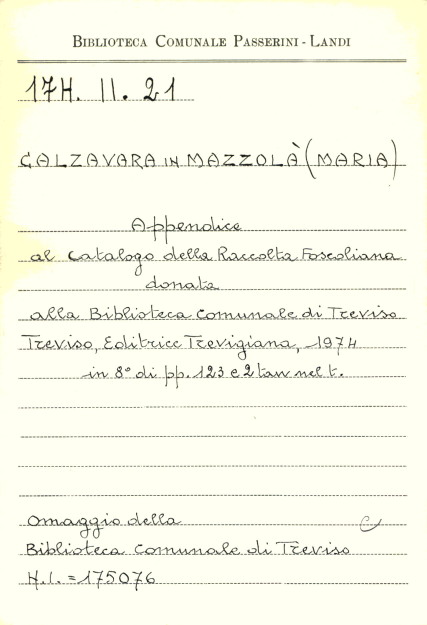 BIBLIOTECA COMUNALE PASSERINI - LANDI
17H. II. 21
CALZAVARA IN MAZZOLÀ (MARIA)
Appendice
al Catalogo della Raccolta Foscoliana
donata
alla Biblioteca Comunale di Treviso
Treviso, Editrice Trevigiana, 1974
in 8° di pp. 123 e 2 tavv nel t.
Omaggio della
Biblioteca Comunale di Treviso
N.I. = 175076